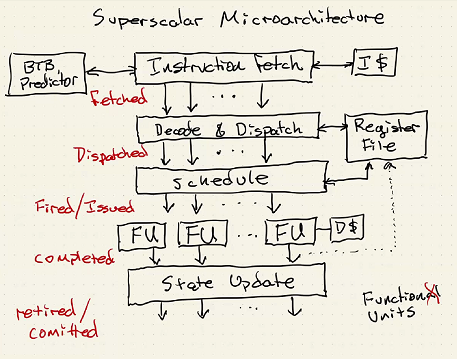 Superscalar Microarchitecture
BTB,
Predictor
Instruction Fetch
I$
Fetched
Decode & Dispatch
Register
File
Dispatched
Schedule
Fired/Issued
FU
FU
...
FU
D$
Completed
State Update
retired/
comitted
Functional
Units